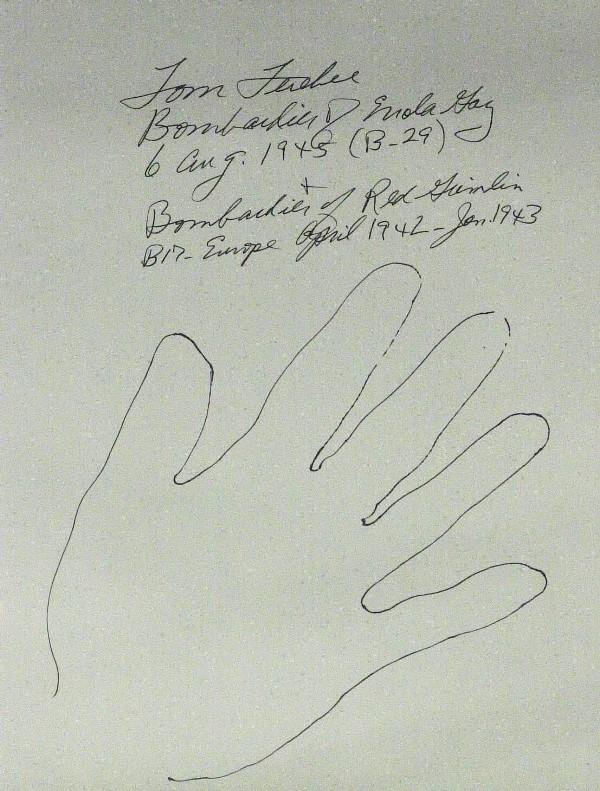 Tom Ferebee
Bombardier of Enola Gay
6 Aug. 1945 (B-29)
+
Bombardier of Red Gremlin
B17- Europe April 1942 - Jan. 1943